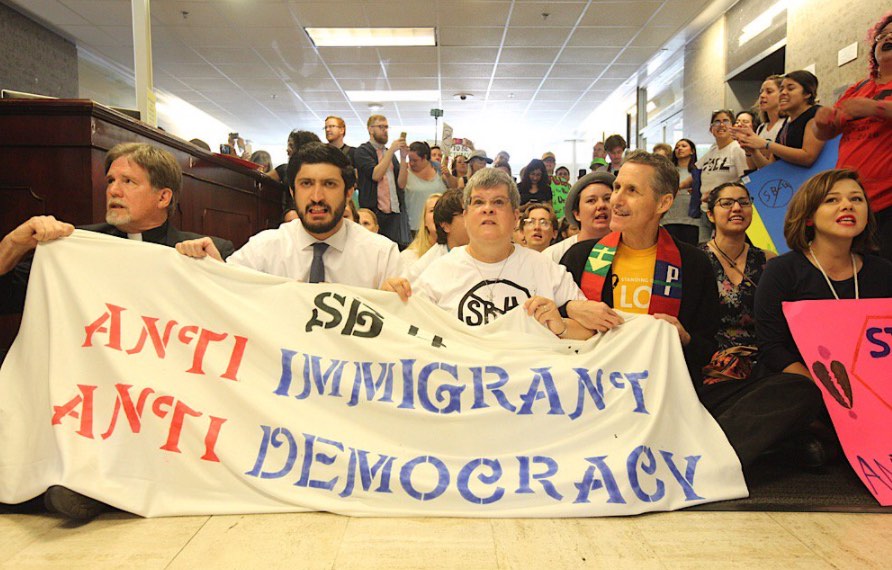 SB 4
ANTI IMMIGRANT
ANTI DEMOCRACY
SB4
STANDING
LO
SB4
ST